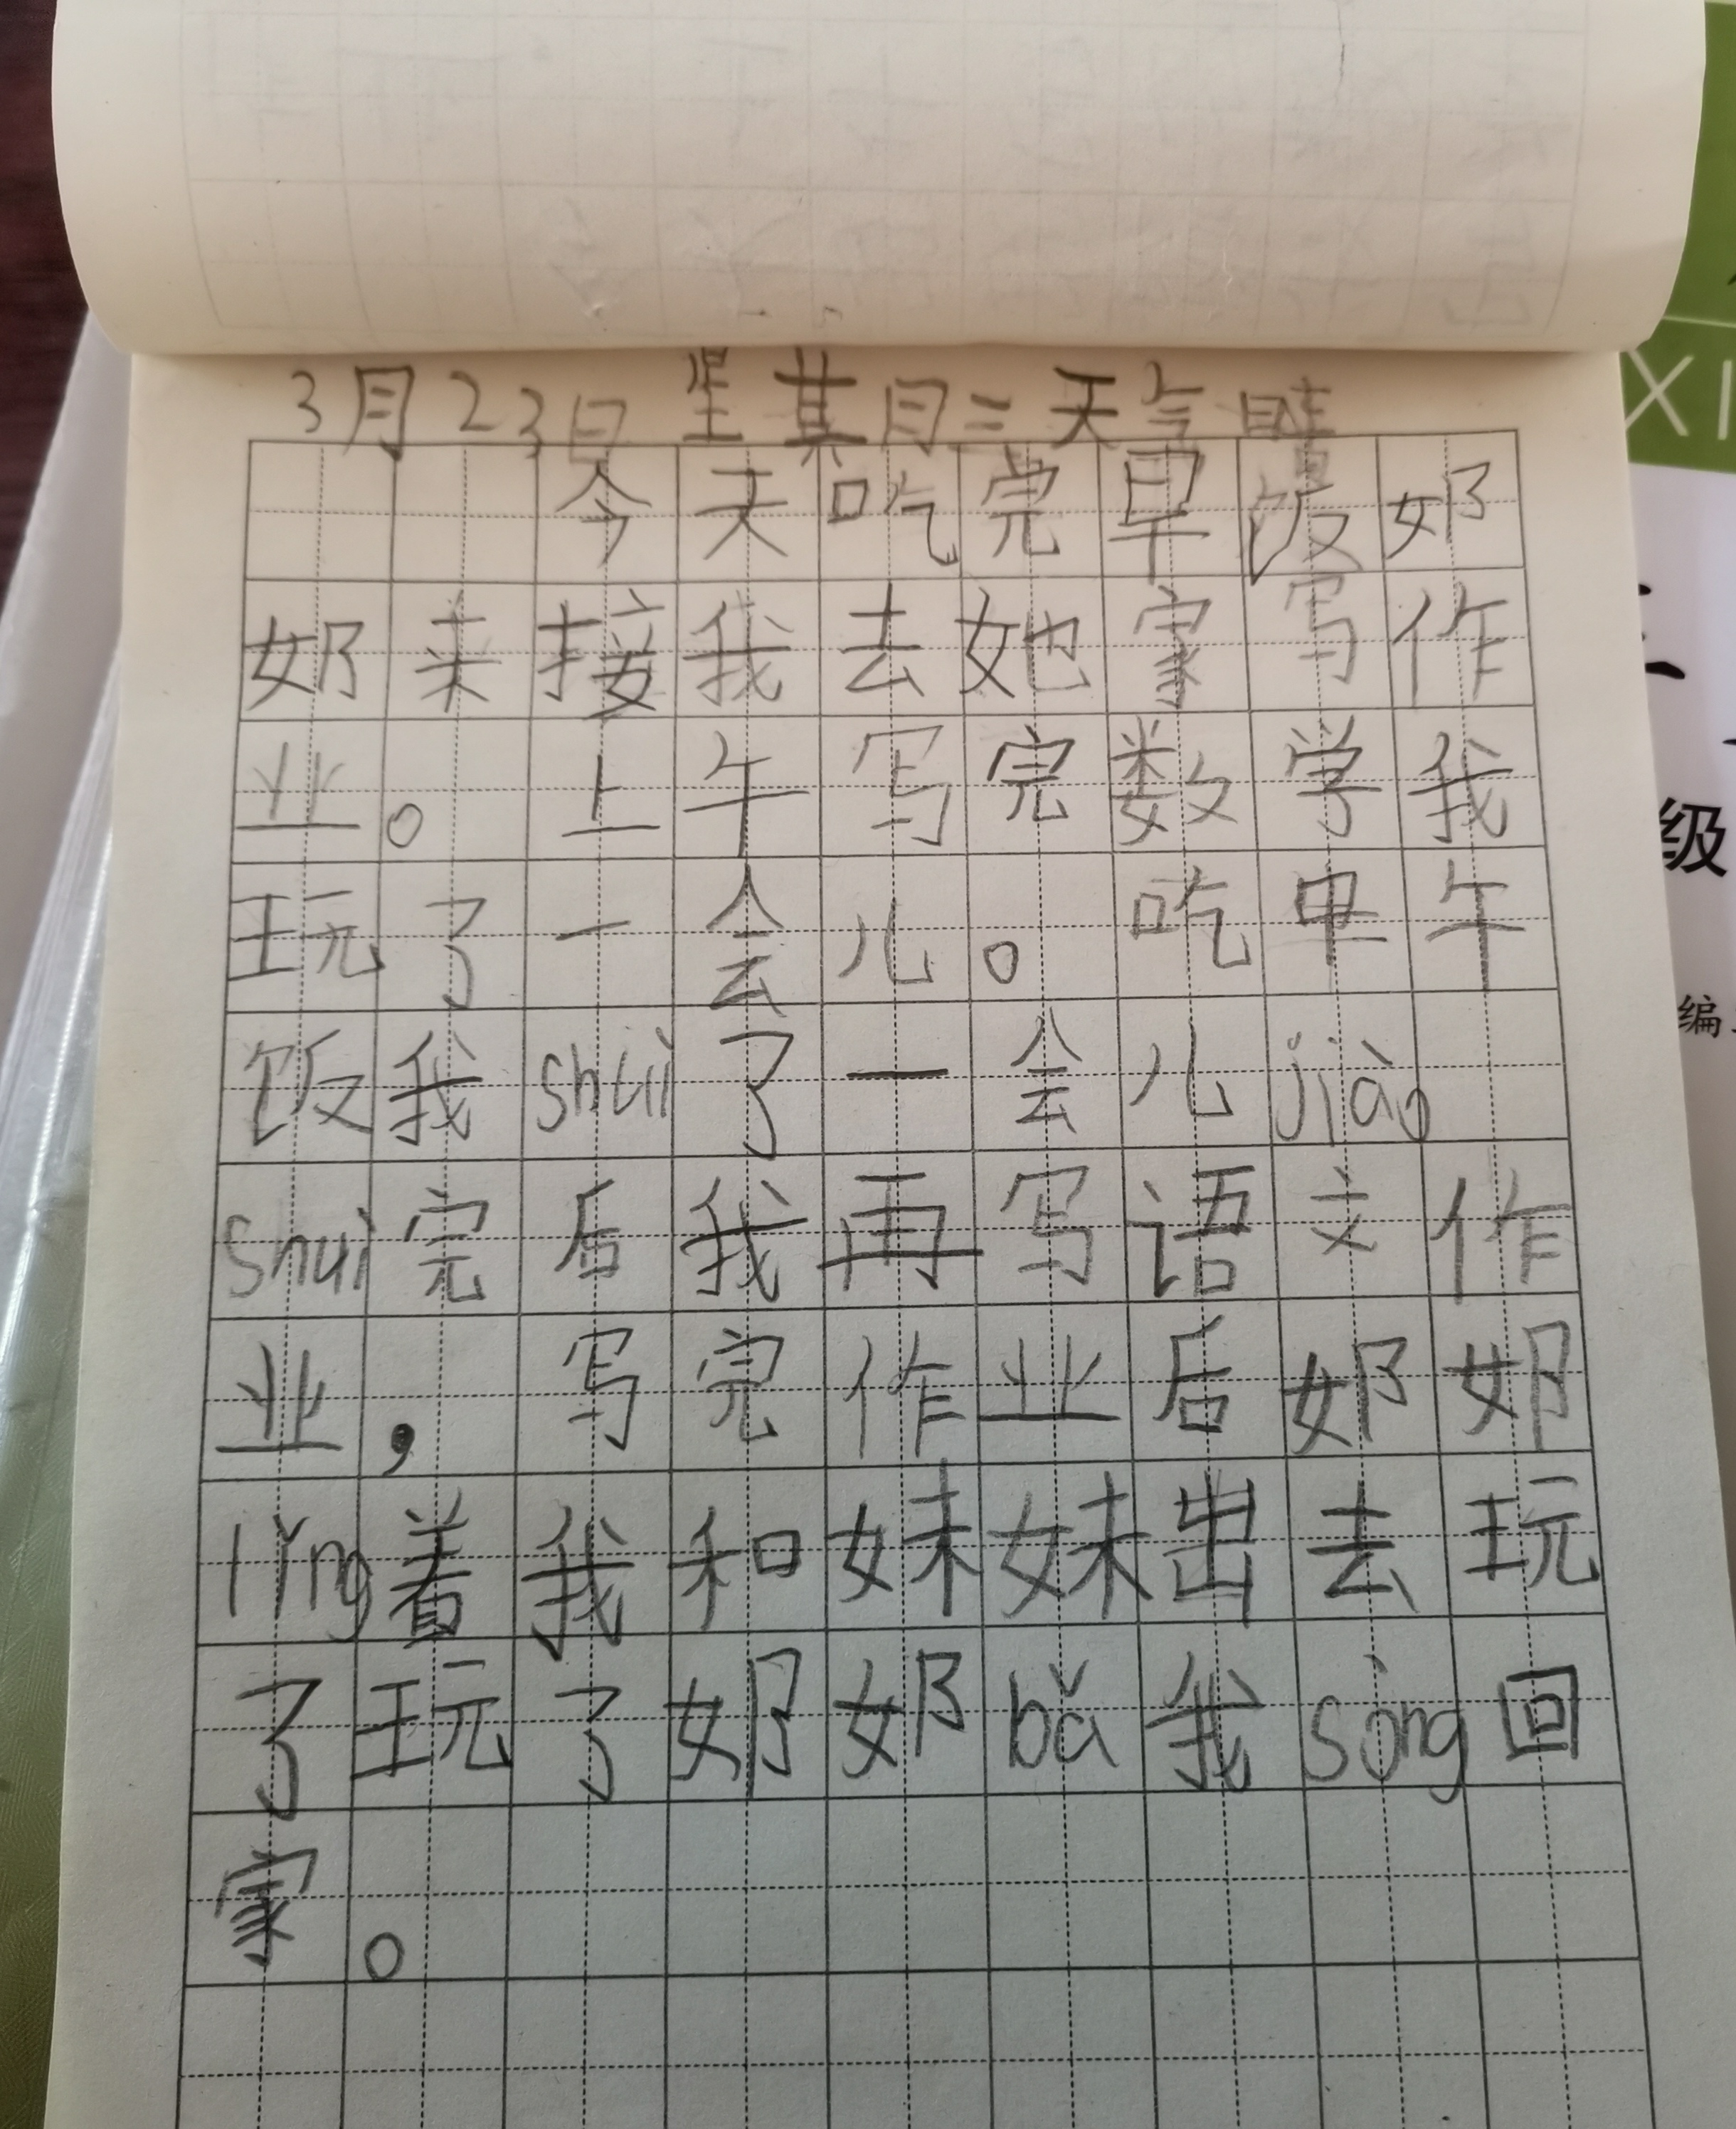 3月23日 星期三天气晴
今天吃完早饭奶
奶来接我去她家写作
业。上午写完数学我
玩了一会儿。吃早午
饭我shuì了一会儿jiào。
shuì完后我再写语文作
业，写完作业后奶奶
lǐng着我和妹妹出去玩
了玩了奶奶bǎ我sòng回
家。
XI
级
编